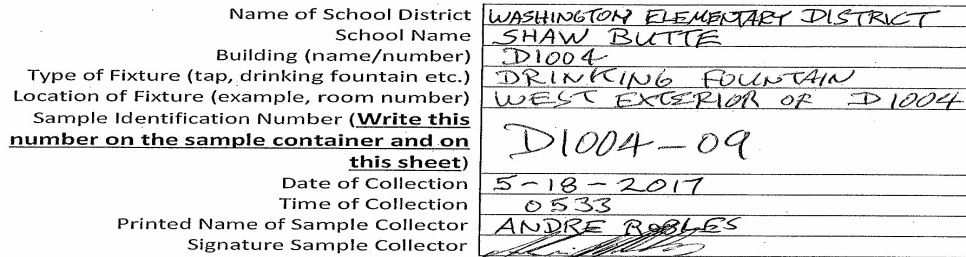 Name of School District WASHINGTON ELEMENTARY DISTRICT
School Name SHAW BUTTE
Building (name/number) D1004
Type of Fixture (tap, drinking fountain etc.) DRINKING FOUNTAIN
Location of Fixture (example, room number) WEST EXTERIOR OF D1004
Sample Identification Number (Write this
number on the sample container and on
this sheet) D1004-09
Date of Collection 5-18-2017
Time of Collection 0533
Printed Name of Sample Collector ANDRE ROBLES
Signature Sample Collector